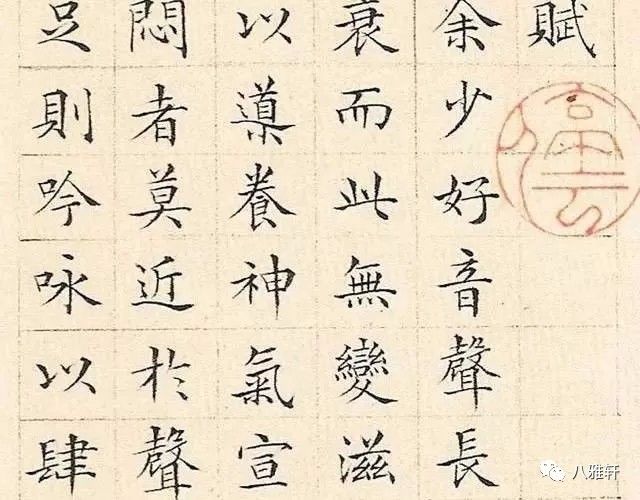 賦
余少好音聲長
衰而此無變滋
以導養神氣宣
悶者莫近於聲
足則吟咏以肆
八雅轩